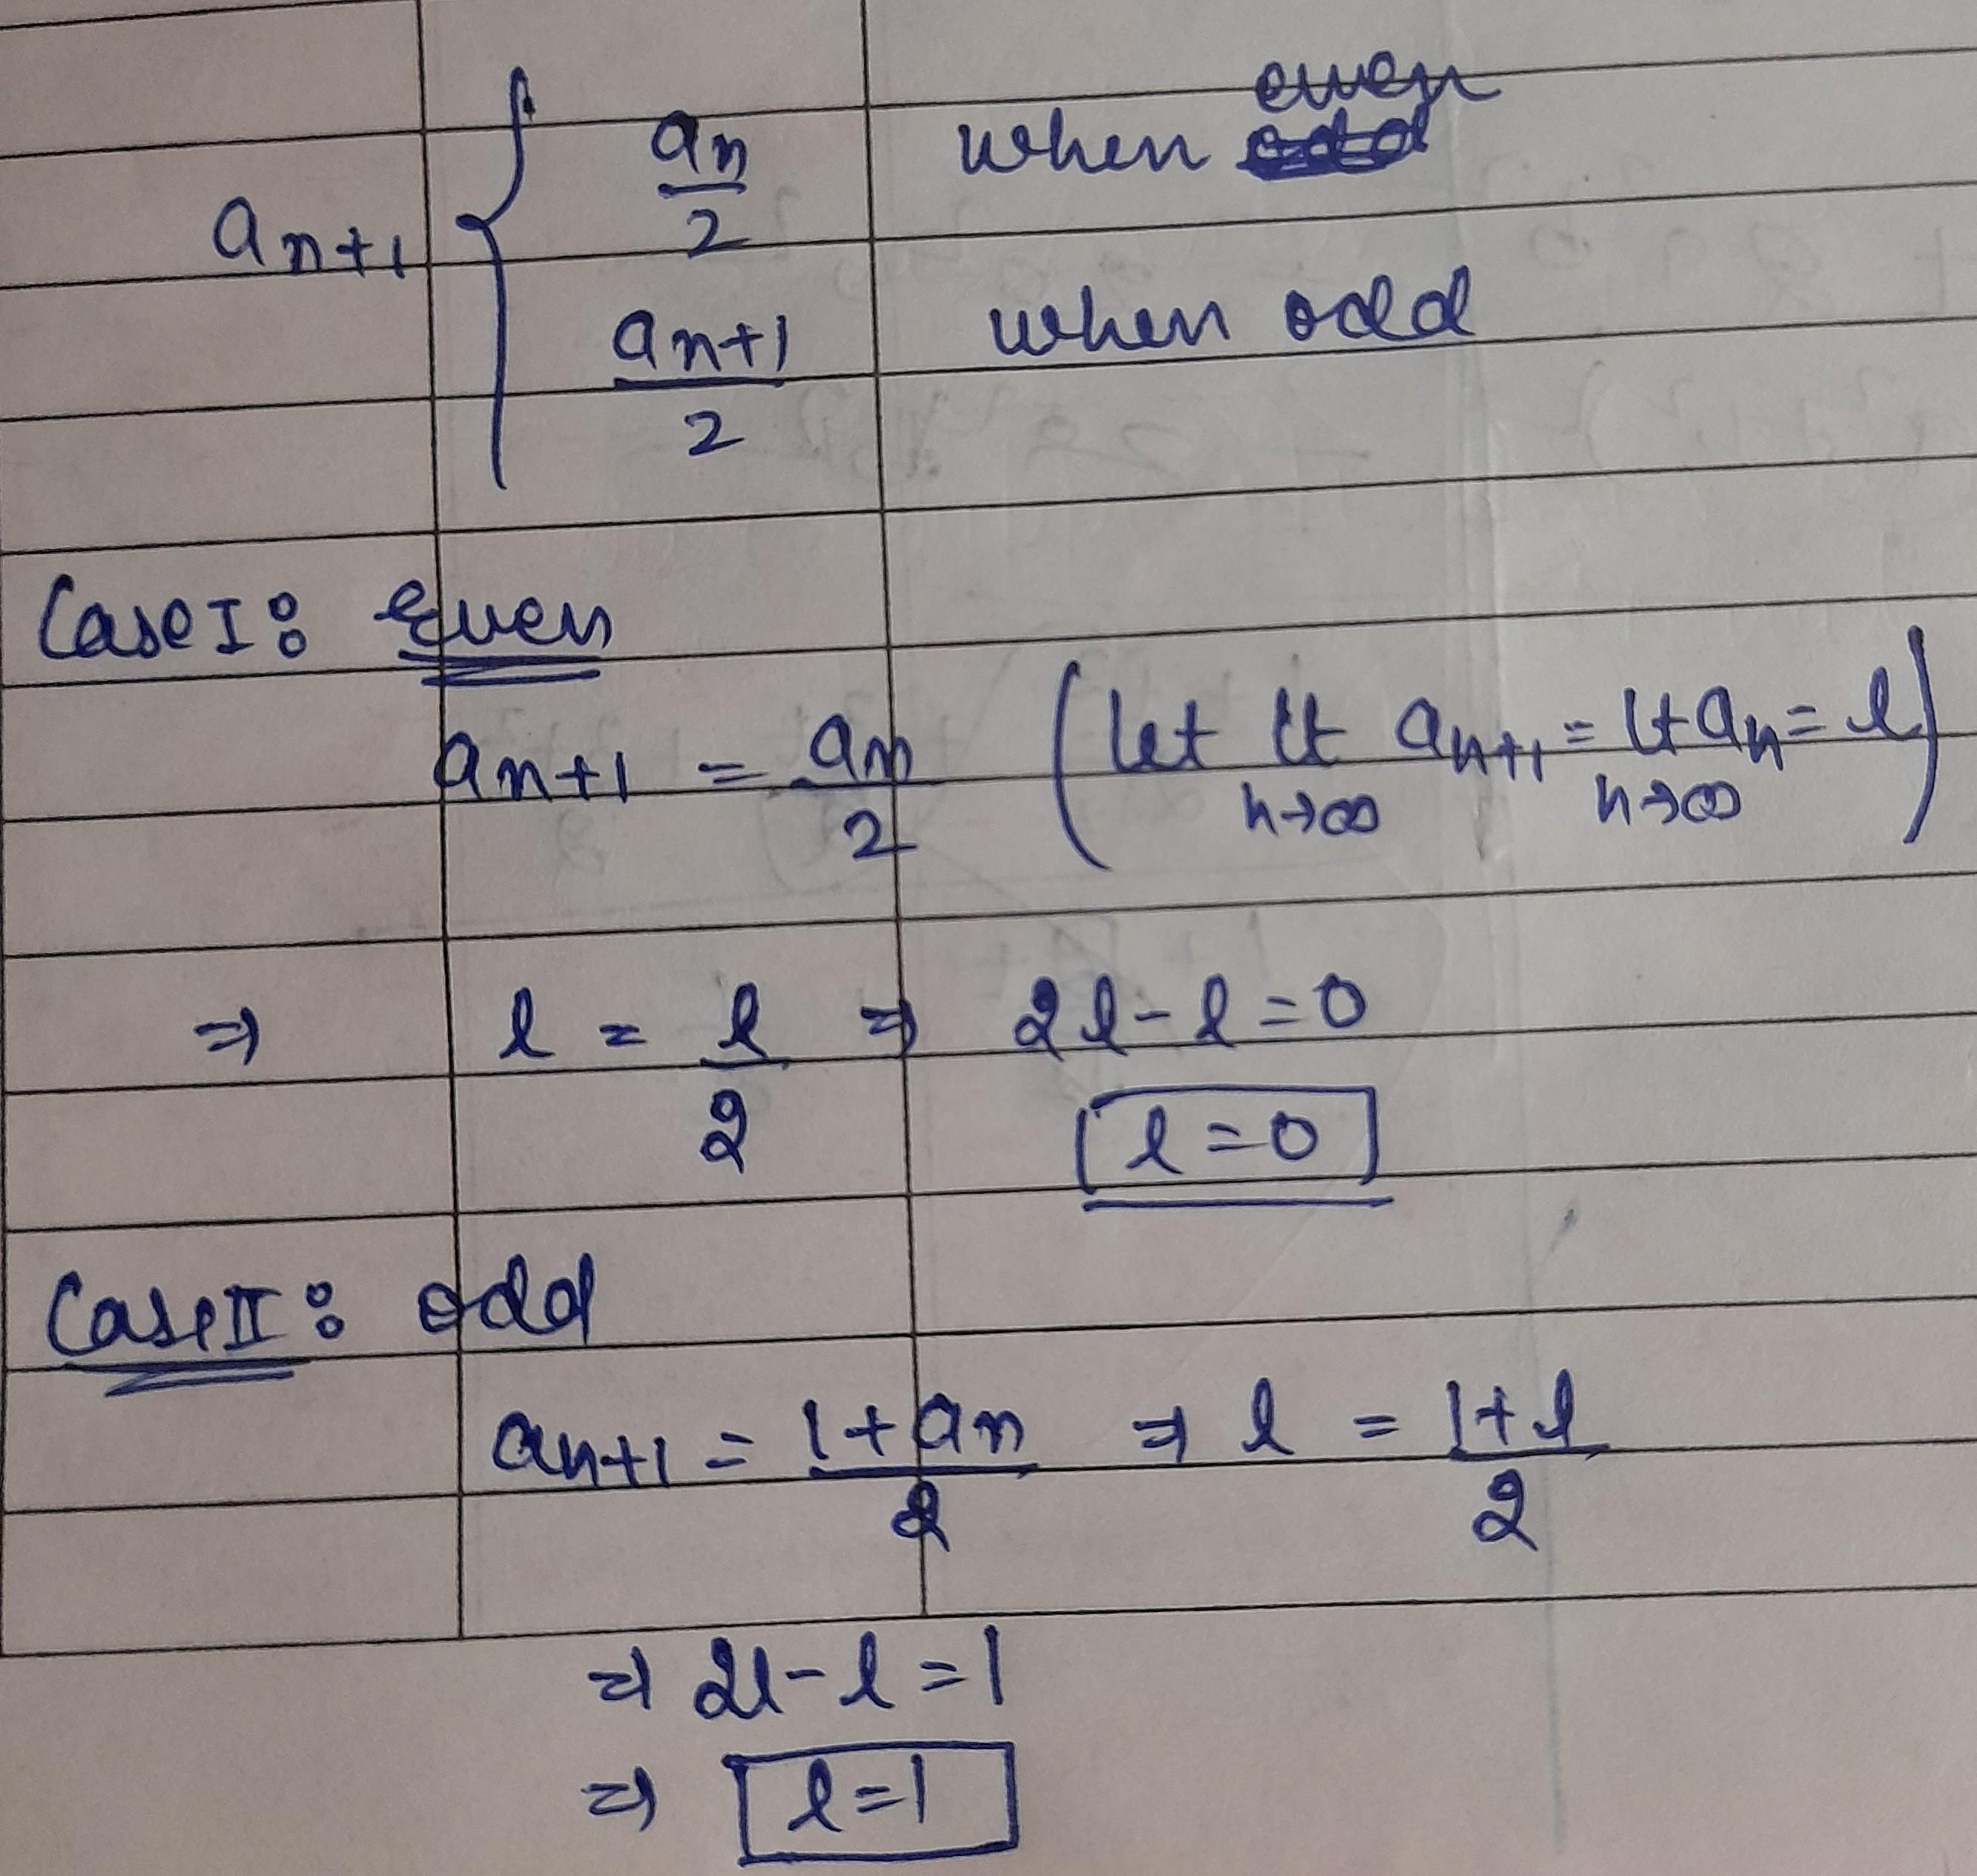 a_{n+1} { a_n/2 when even
a_{n+1}/2 when odd
Case I: Even
a_{n+1} = a_n/2 (let lt_{n→∞} a_{n+1} = lt_{n→∞} a_n = l)
⇒ l = l/2 ⇒ 2l-l=0
l=0
Case II: odd
a_{n+1} = 1+a_n/2 ⇒ l = 1+l/2
⇒ 2l-l=1
⇒ l=1